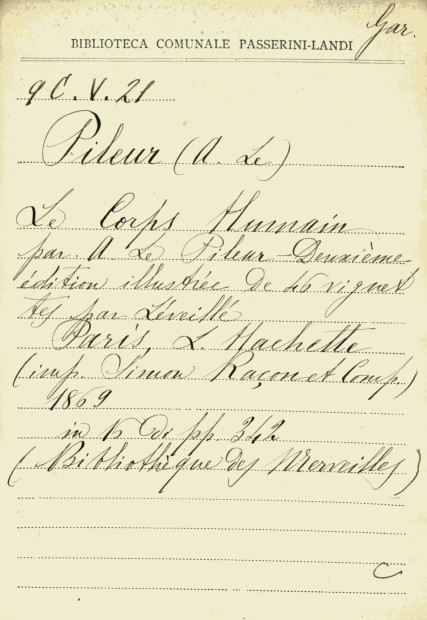 Gar.
BIBLIOTECA COMUNALE PASSERINI-LANDI
9 C. V. 21
Pileur (A. Le)
Le Corps Humain
par A Le Pileur - Deuxième
édition illustrée de 46 vignet
tes par Léveillé
Paris, L. Hachette
(imp. Simon Raçon et Comp.)
1869
in di pp. 342
(Bibliothèque des Merveilles)
C